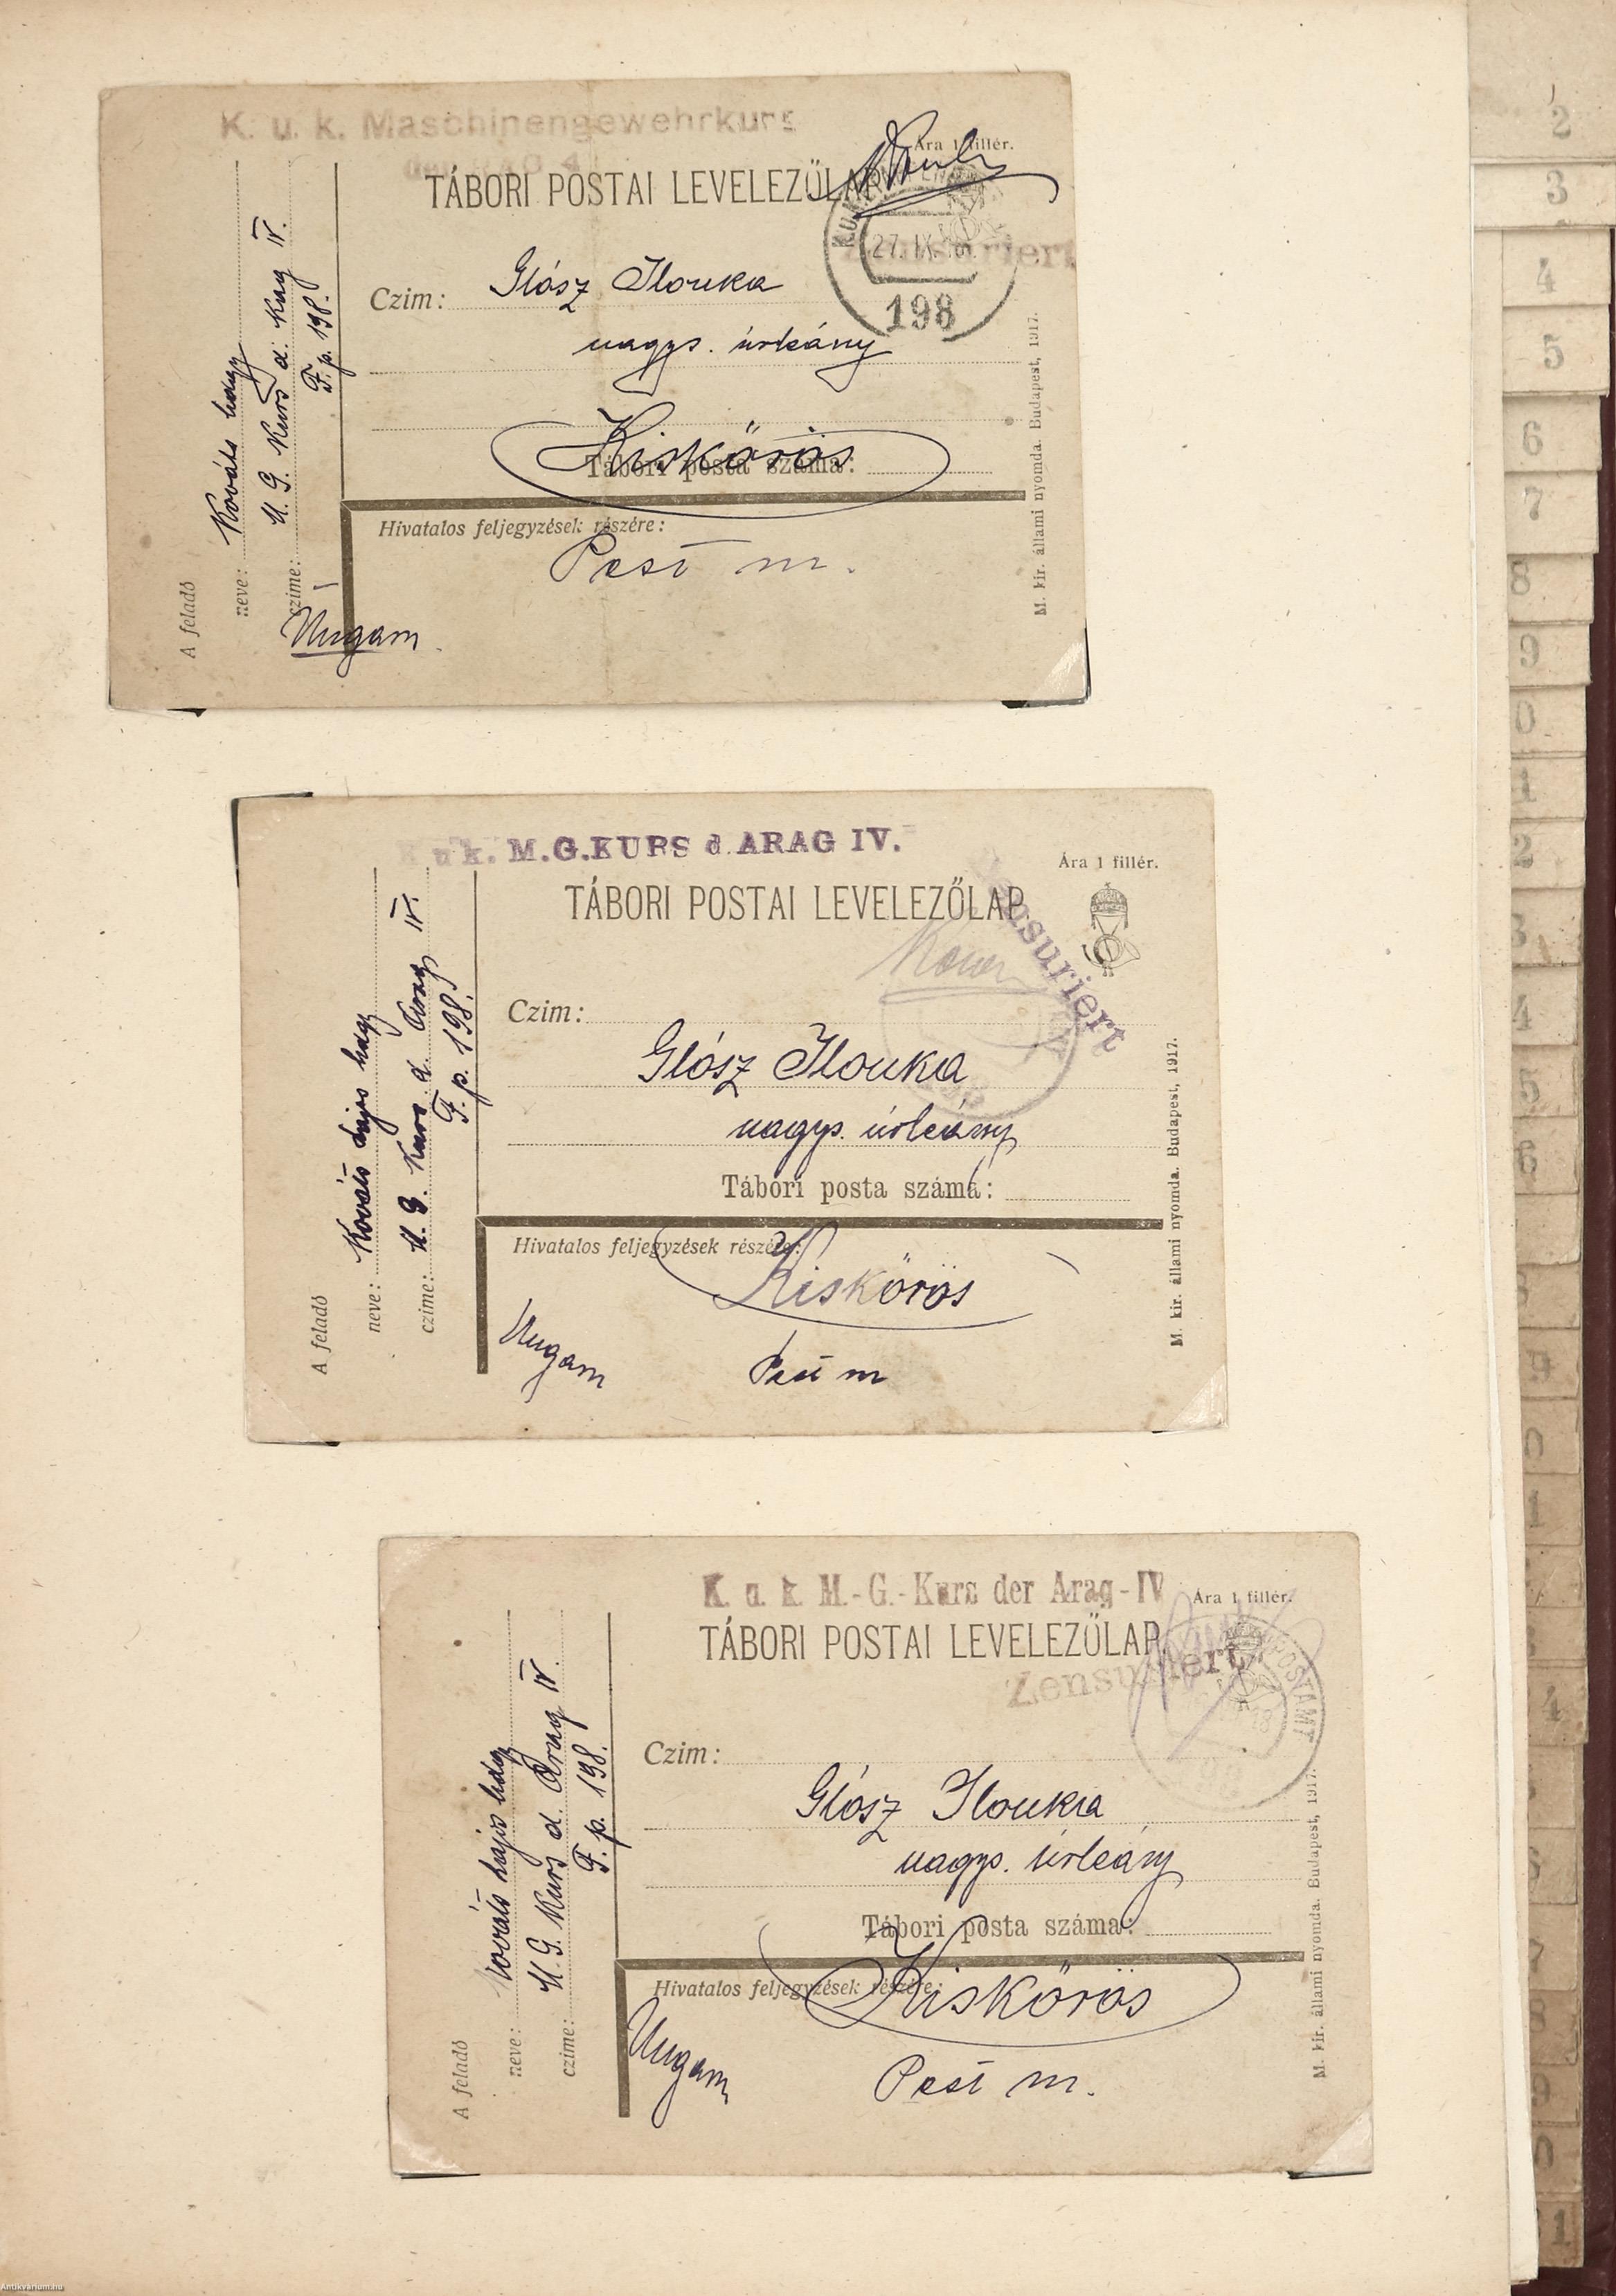 K. u. k. Maschinengewehrkurs
Ára 1 fillér.
TÁBORI POSTAI LEVELEZŐLAP
27. IX.
Zensuriert
198
Czim: Glósz Ilonka
nagys. úrleány
Kiskőrös
Tábori posta száma:
Hivatalos feljegyzések részére:
Pest m.
Ungarn
A feladó
neve: Kováts hdgy
czime: M. G. Kurs d. Arag IV.
F. p. 198.
M. kir. állami nyomda. Budapest, 1917.
u. k. M.G.KURS d. ARAG IV.
Ára 1 fillér.
TÁBORI POSTAI LEVELEZŐLAP
Zensuriert
Czim:
Glósz Ilonka
nagys. úrleány
Tábori posta száma:
Hivatalos feljegyzések részére:
Kiskőrös
Ungarn
Pest m
A feladó
neve: Kováts Lajos hdgy
czime: M. G. Kurs d. Arag IV.
F. p. 198.
M. kir. állami nyomda. Budapest, 1917.
K. u. k. M.-G.-Kurs der Arag-IV
Ára 1 fillér.
TÁBORI POSTAI LEVELEZŐLAP
Zensuriert
Czim:
Glósz Ilonka
nagys. úrleány
Tábori posta száma:
Hivatalos feljegyzések részére:
Kiskőrös
Ungarn
Pest m.
A feladó
neve: Kováts Lajos hdgy
czime: M. G. Kurs d. Arag IV.
F. p. 198.
M. kir. állami nyomda. Budapest, 1917.
2
3
4
5
6
7
8
9
0
1
2
Antikvárium.hu